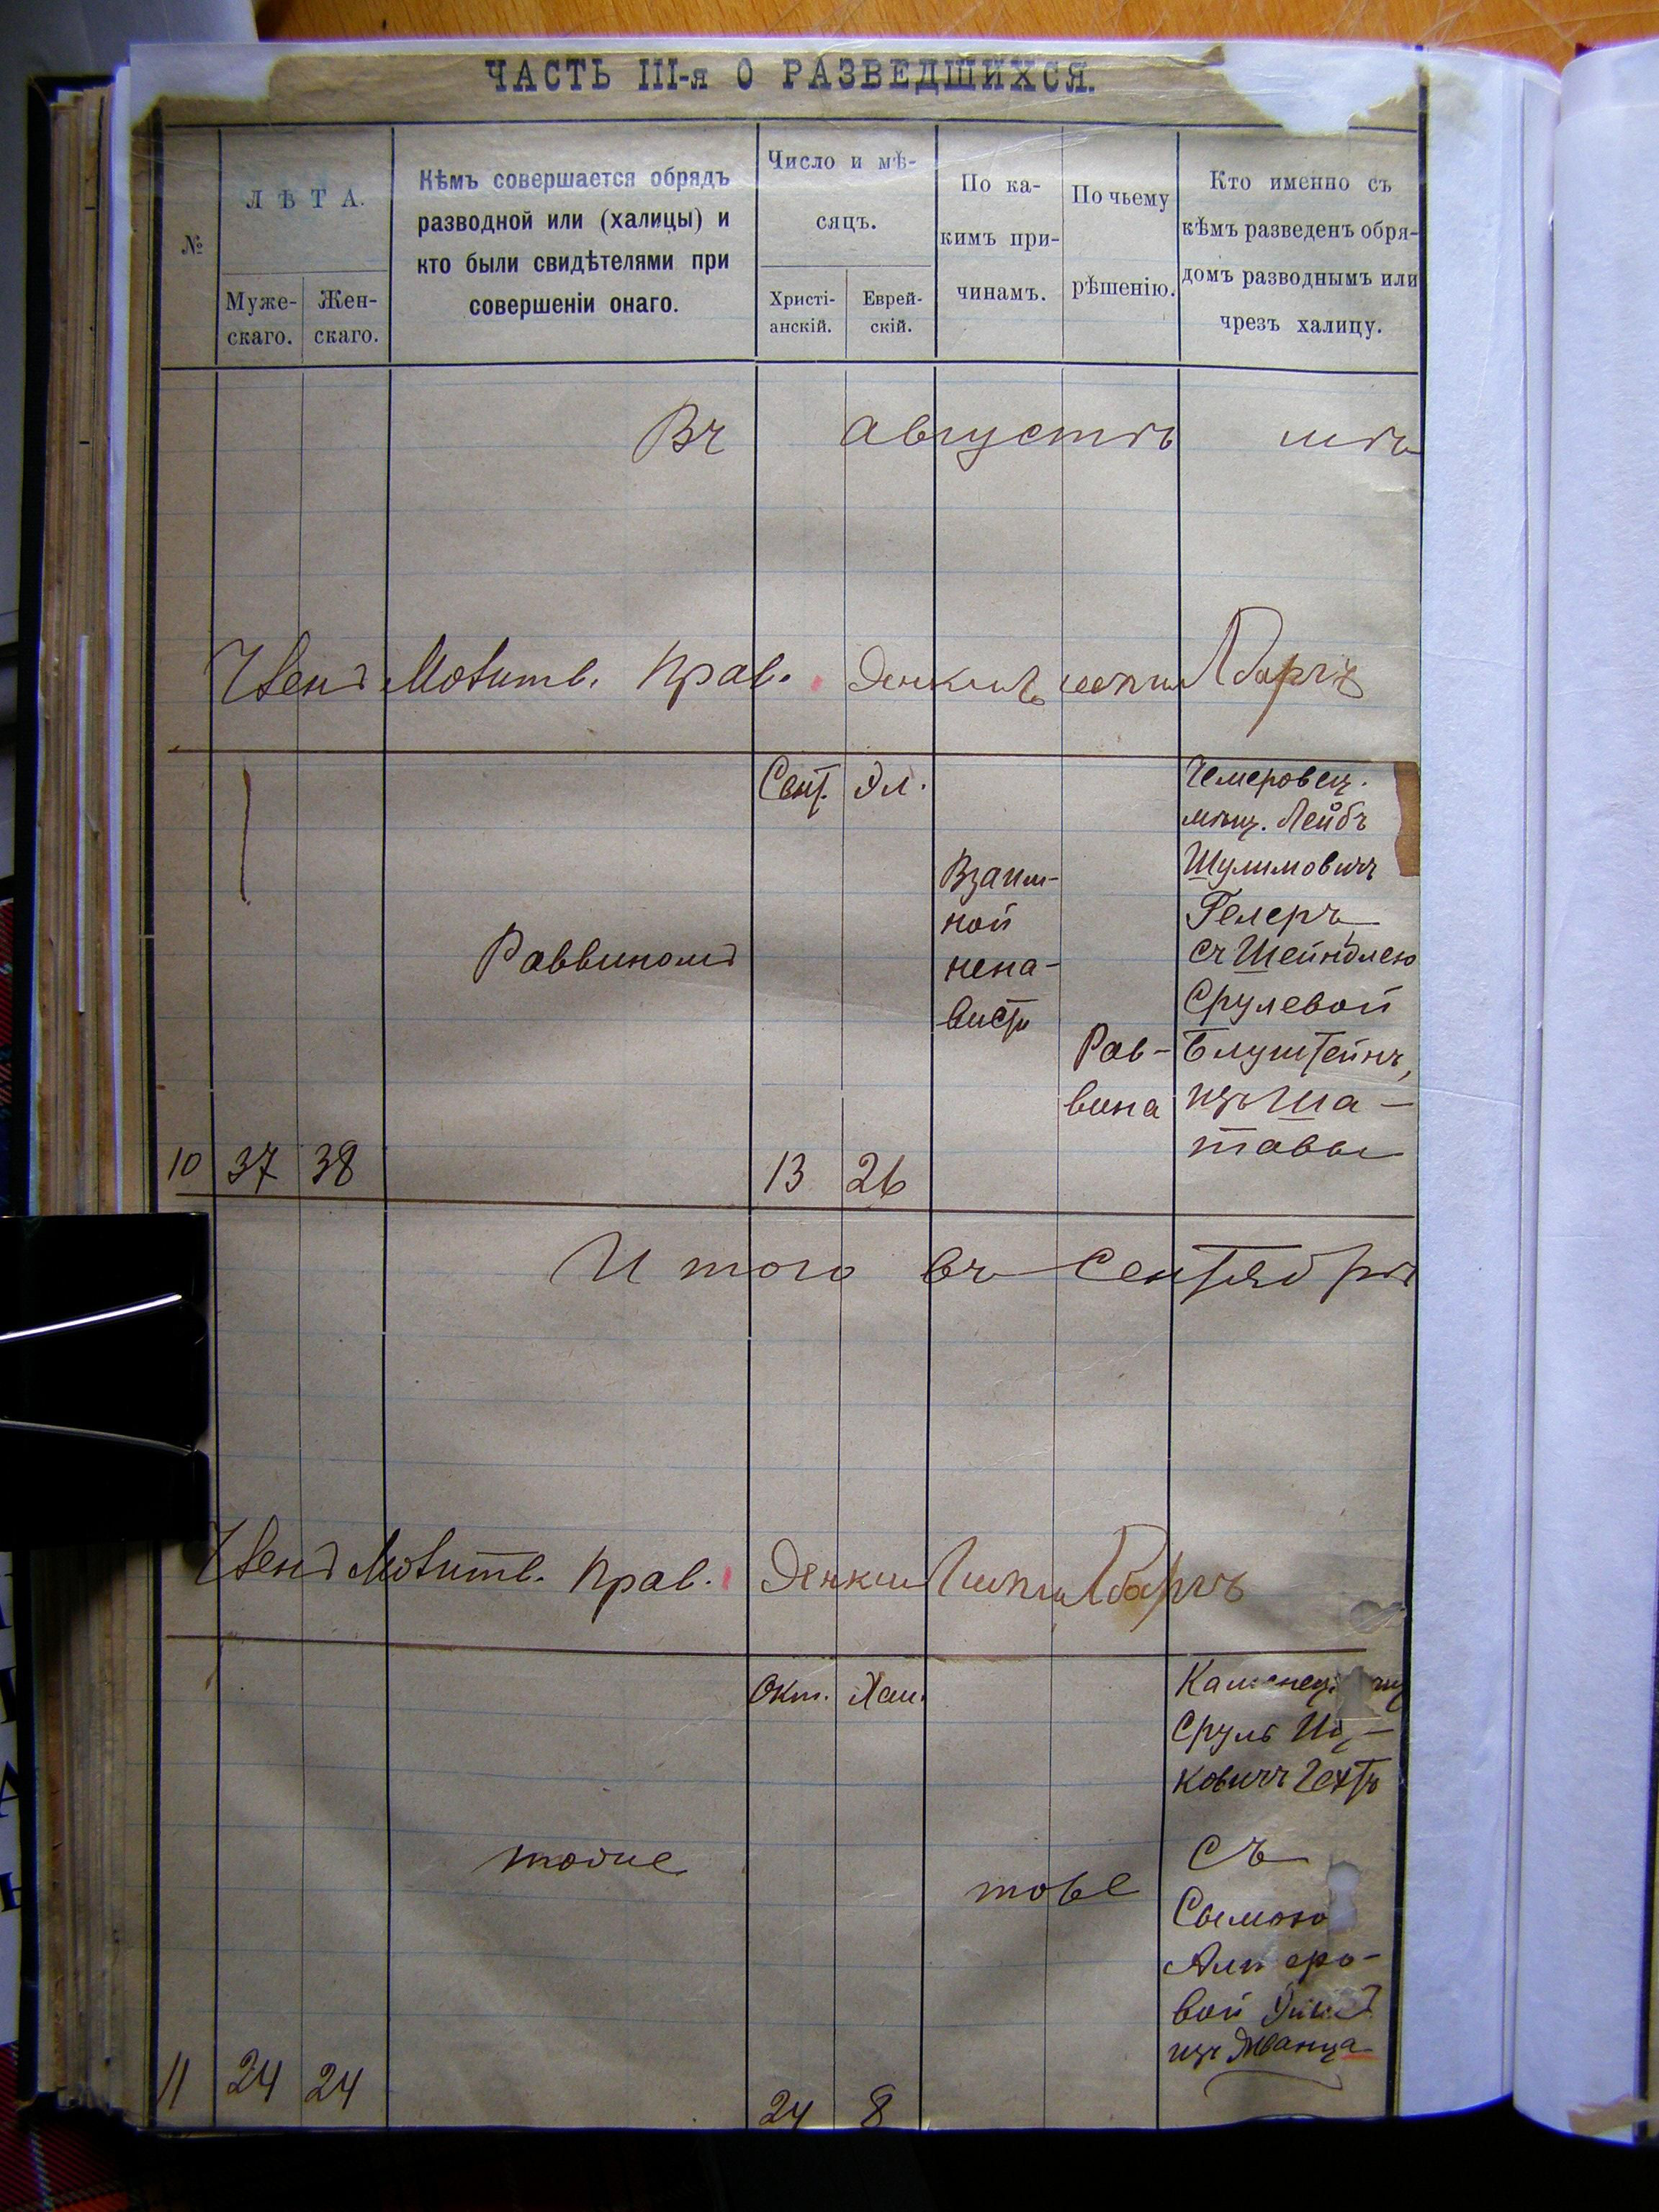 ЧАСТЬ III-я О РАЗВЕДШИХСЯ.
№
ЛѢТА.
Муже-
скаго.
Жен-
скаго.
Кѣмъ совершается обрядъ
разводной или (халицы) и
кто были свидѣтелями при
совершеніи онаго.
Число и мѣ-
сяцъ.
Христі-
анскій.
Еврей-
скій.
По ка-
кимъ при-
чинамъ.
По чьему
рѣшенію.
Кто именно съ
кѣмъ разведенъ обря-
домъ разводнымъ или
чрезъ халицу.
Въ августѣ
Членъ Молитв. Прав.
10
37
38
Раввиномъ
Сент.
13
Эл.
26
Взаим-
ной
нена-
висти
Рав-
вина
Чемеровец.
мѣщ. Лейбъ
Шулимовичъ
Гелеръ
съ Шейндлею
Срулевой
Блуштейнъ,
изъ Ша-
тавы
Итого въ Сентябрѣ
Членъ Молитв. Прав.
11
24
24
тоже
Окт.
24
Хеш.
8
тоже
Каменец.
Сруль Иц-
ковичъ Гехтъ
съ
Сымою
Альтеро-
вой
изъ Жванца